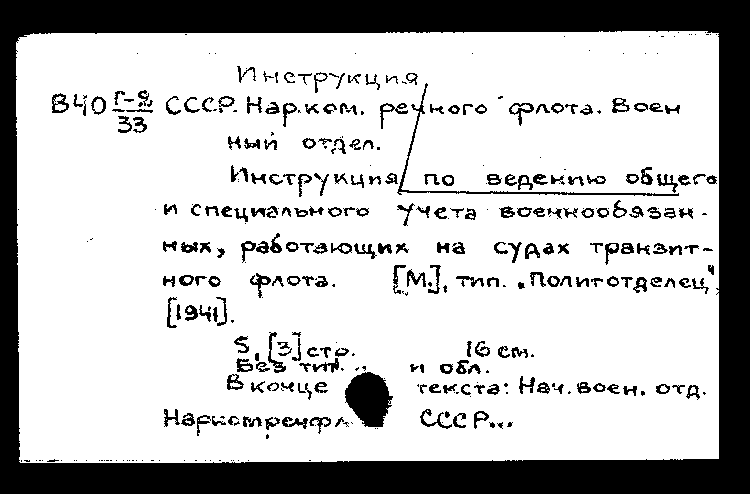 Инструкция
В40 г-2/33 СССР. Нар.ком. речного флота. Воен
ный отдел.
Инструкция по ведению общего
и специального учета военнообязан-
ных, работающих на судах транзит-
ного флота. [М.], тип. „Политотделец",
[1941].
5, [3] стр. 16 см.
Без тит. и обл.
В конце текста: Нач. воен. отд.
Наркомречфл СССР...